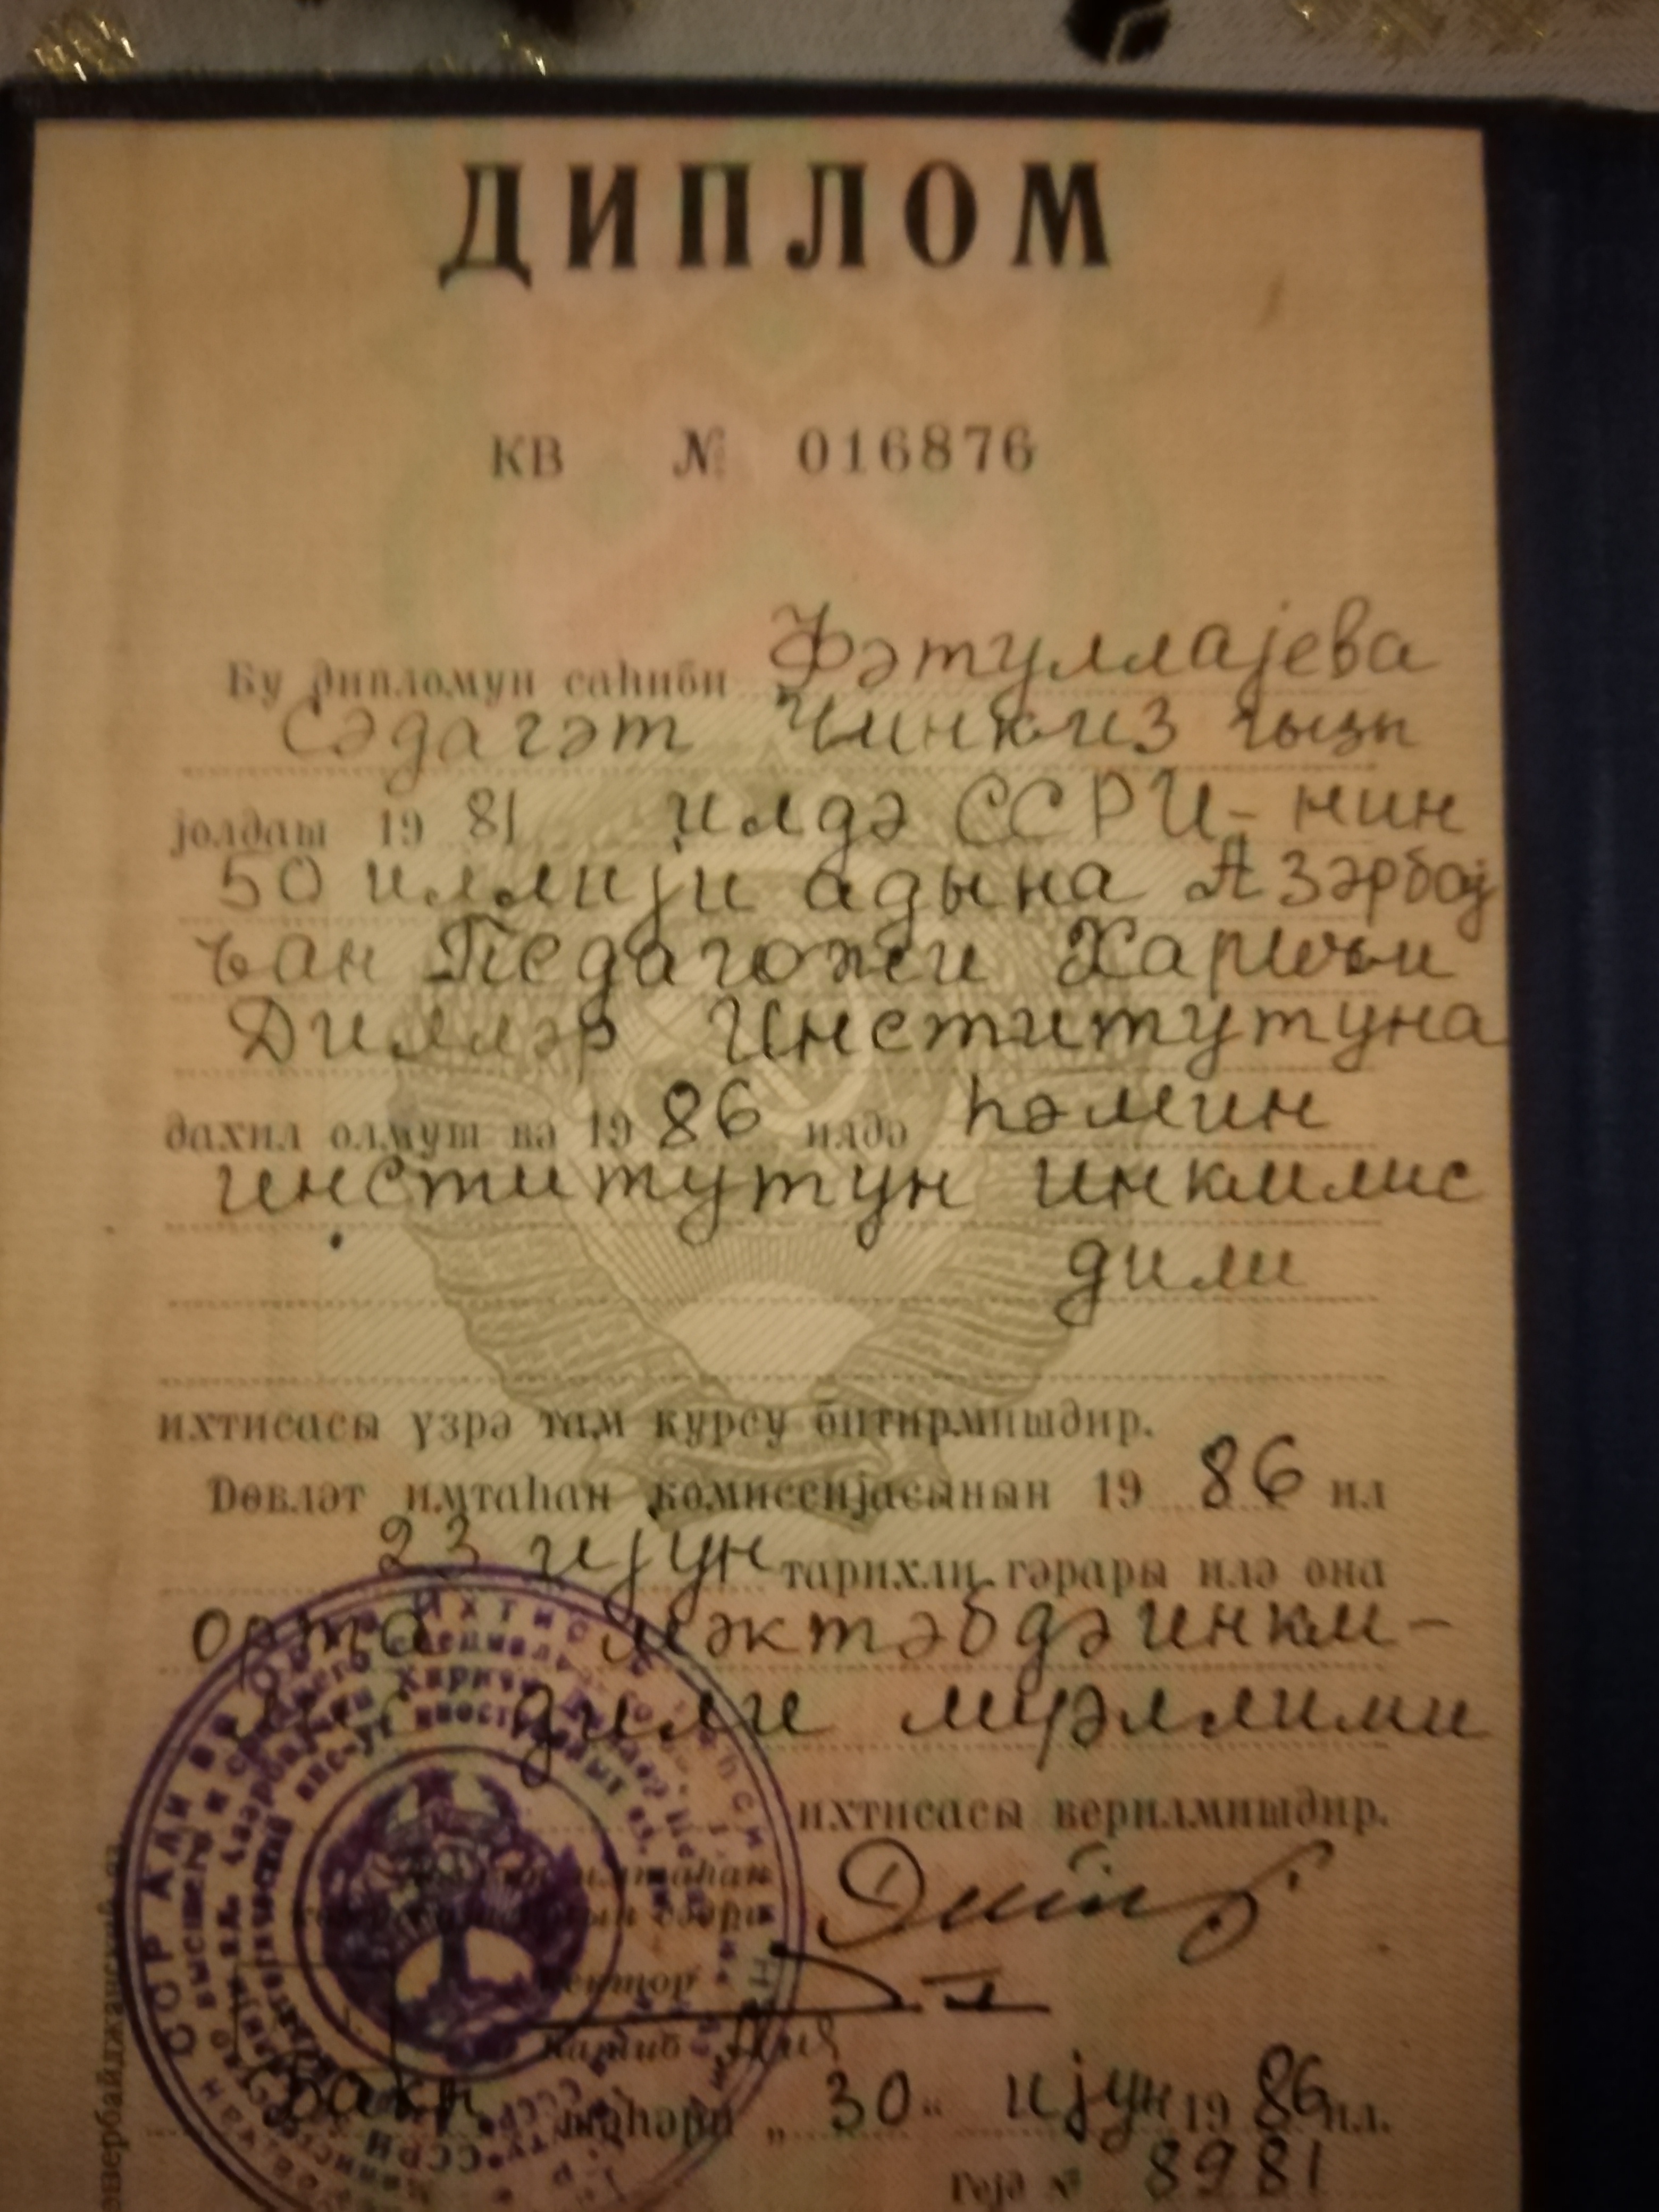 ДИПЛОМ
КВ № 016876
Бу дипломун саһиби Фәтуллајева
Сәдагәт Чинкиз гызы
јолдаш 1981 илдә ССРИ-нин
50 иллији адына Азәрбај
ҹан Педагожи Харичи
Дилләр Институтуна
дахил олмуш вә 1986 илдә һәмин
институтун инкилис
дили
ихтисасы үзрә там курсу битирмишдир.
Дөвләт имтаһан комиссијасынын 1986 ил
23 ијун тарихли гәрары илә она
орта мәктәбдә инки-
дили мүәллими
ихтисасы верилмишдир.
имтаһан
сәдри
ректор
катиб
Бакы шәһәри „30“ ијун 1986 ил.
Гејд № 8981